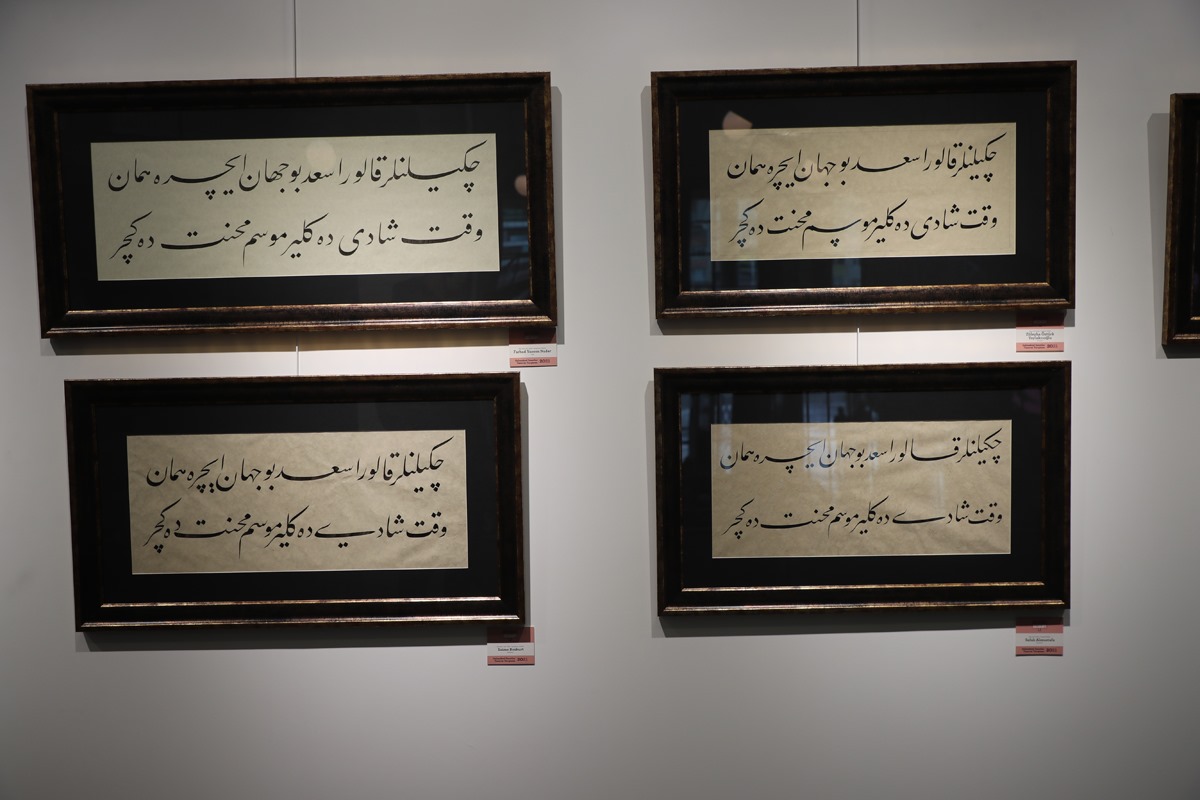 چكيلنلر قالور اسعد بو جهان ايچره همان
وقت شادى ده كلير موسم محنت ده كچر
چكيلنلر قالور اسعد بو جهان ايچره همان
وقت شادى ده كلير موسم محنت ده كچر
چكيلنلر قالور اسعد بو جهان ايچره همان
وقت شادى ده كلير موسم محنت ده كچر
چكيلنلر قالور اسعد بو جهان ايچره همان
وقت شادى ده كلير موسم محنت ده كچر